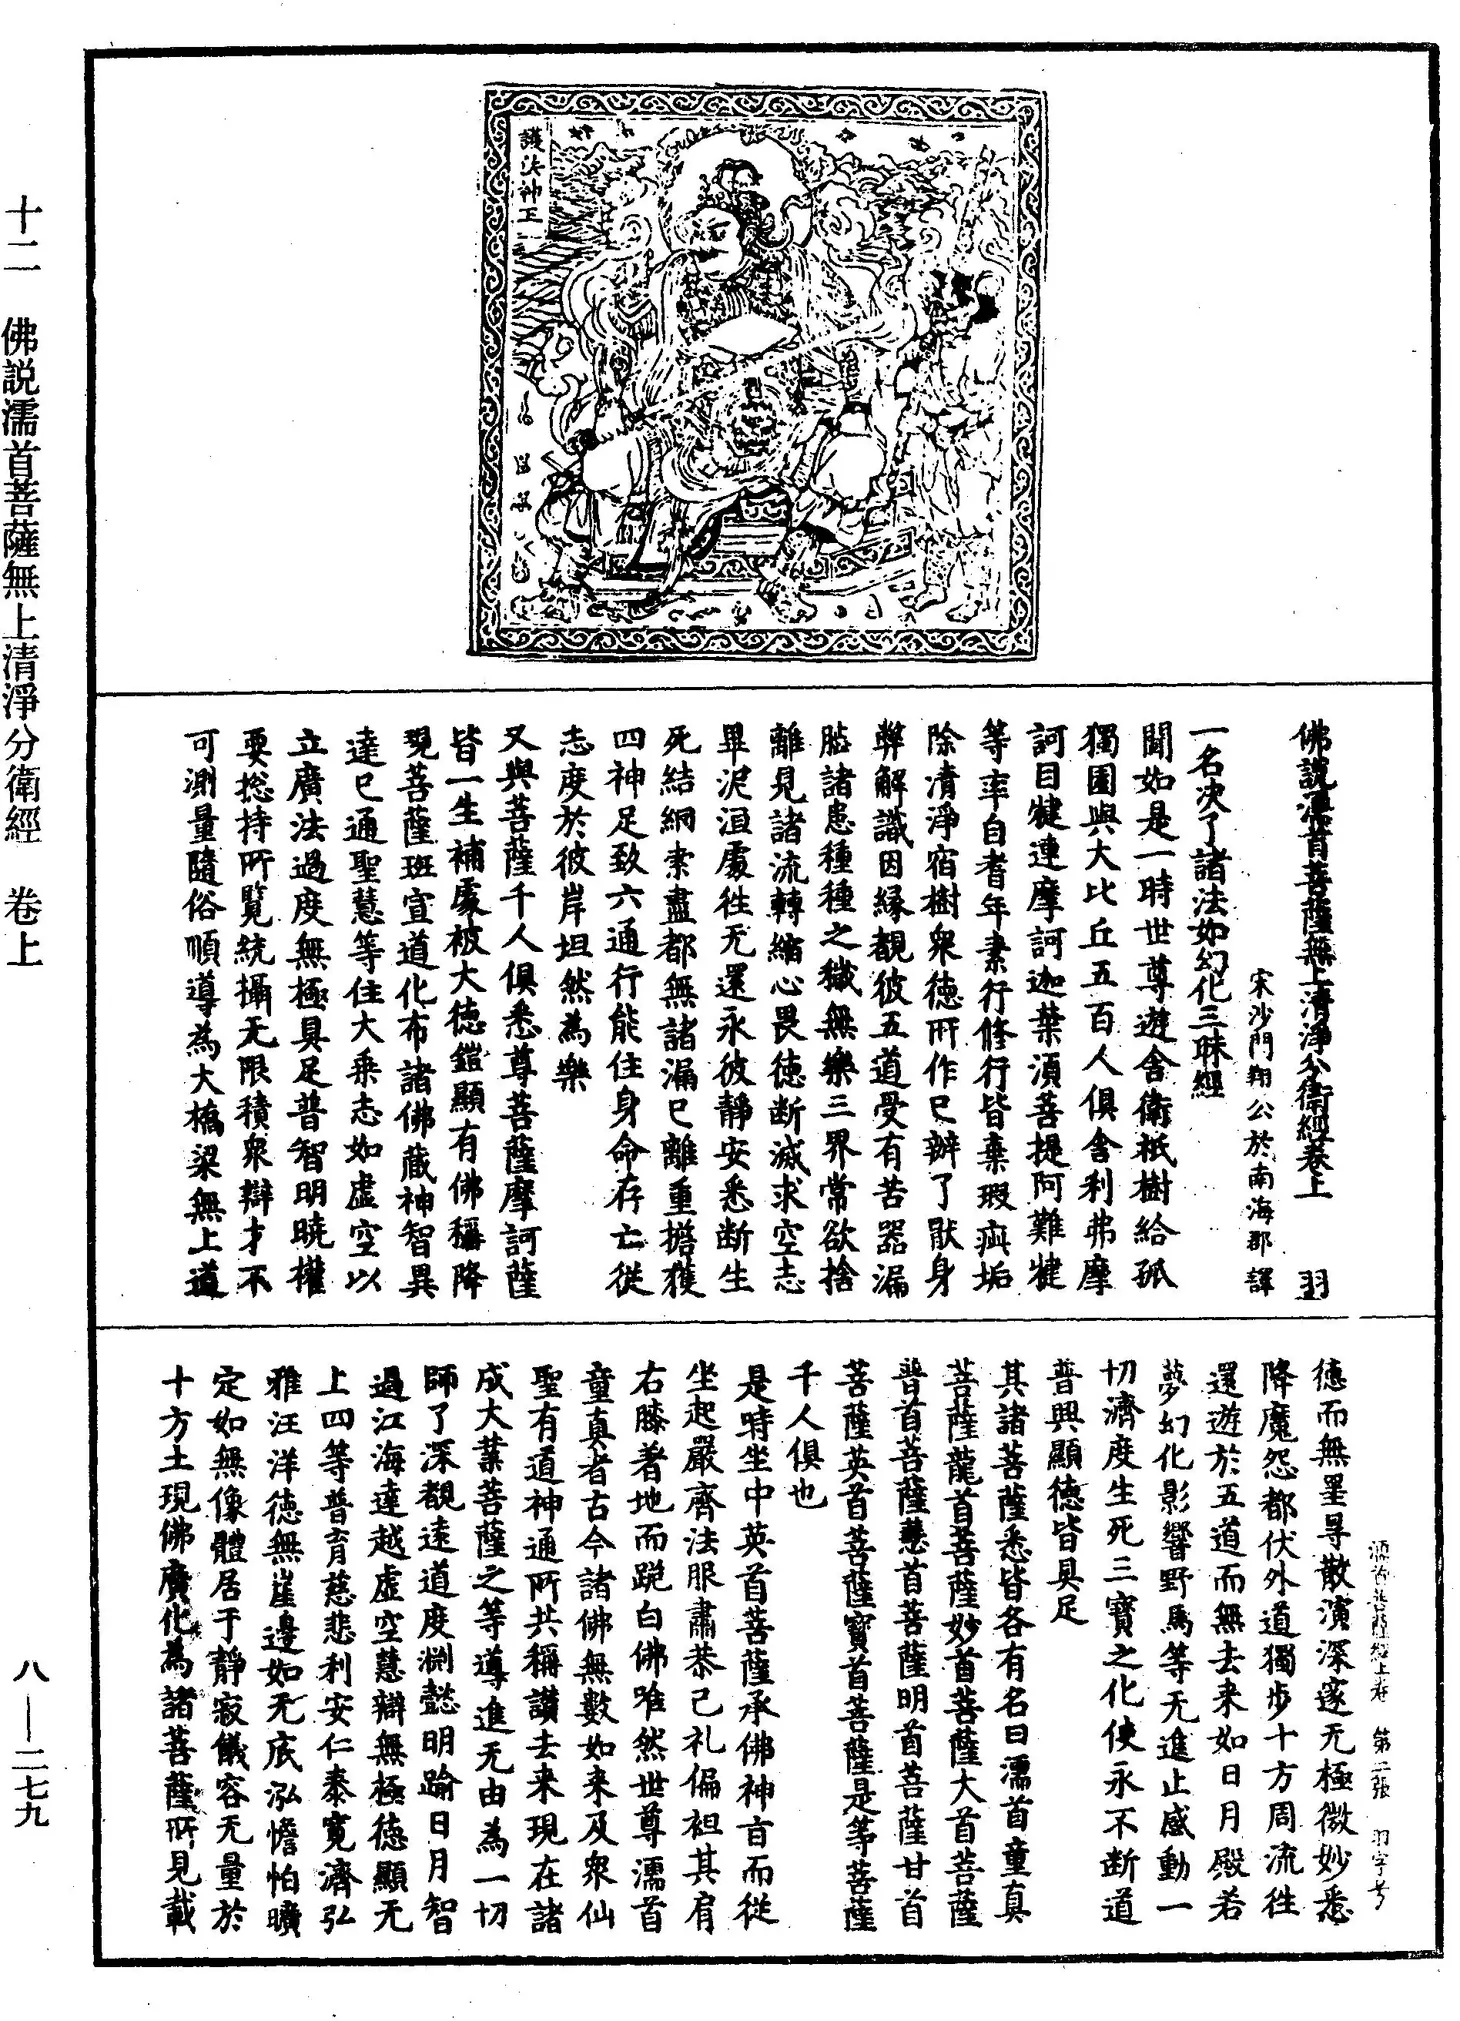 護法神王
佛說濡首菩薩無上清淨分衛經卷上　羽
宋沙門翔公於南海郡譯
一名決了諸法如幻化三昧經
聞如是一時世尊遊舍衛祇樹給孤
獨園與大比丘五百人俱舍利弗摩
訶目犍連摩訶迦葉須菩提阿難犍
等率自耆年素行修行皆棄瑕疵垢
除清淨宿樹衆德所作已辦了猒身
弊解識因緣覩彼五道受有苦器漏
臭諸恚種種之穢無樂三界常欲捨
離見諸流轉縮心畏徳断滅求空志
畢泥洹處徃无還永彼靜安悉断生
死結網索盡都無諸漏已離重擔獲
四神足致六通行能住身命存亡從
志度於彼岸坦然為樂
又與菩薩千人俱悉尊菩薩摩訶薩
皆一生補處被大德鎧顯有佛稱降
現菩薩班宣道化布諸佛藏神智異
達已通聖慧等住大乘志如虛空以
立廣法過度無極具足普智明曉權
要捴持所覧統攝无限積衆辯才不
可測量隨俗順導為大橋梁無上道
濡首菩薩經上卷　第二張　羽字号
德而無罣㝵散演深邃无極微妙悉
降魔怨都伏外道獨步十方周流往
還遊於五道而無去来如日月殿若
夢幻化影響野馬等无進止感動一
切濟度生死三寶之化使永不断道
普興顯德皆具足
其諸菩薩悉皆各有名曰濡首童真
菩薩龍首菩薩妙首菩薩大首菩薩
普首菩薩慧首菩薩明首菩薩甘首
菩薩英首菩薩寶首菩薩是等菩薩
千人俱也
是時坐中英首菩薩承佛神旨而從
坐起嚴齊法服肅恭已礼偏袒其肩
右膝著地而跪白佛唯然世尊濡首
童真者古今諸佛無數如来及衆仙
聖有道神通所共稱讃去来現在諸
成大業菩薩之等導進无由為一切
師了深覩遠道度淵懿明踰日月智
過江海達越虛空慧辯無極徳顯无
上四等普育慈悲利安仁泰寬濟弘
雅汪洋徳無崖邊如无底泓憺怕曠
定如無像體居于靜寂儀容无量於
十方土現佛廣化為諸菩薩所見載
十二　佛説濡首菩薩無上清淨分衛經　卷上
八—二七九